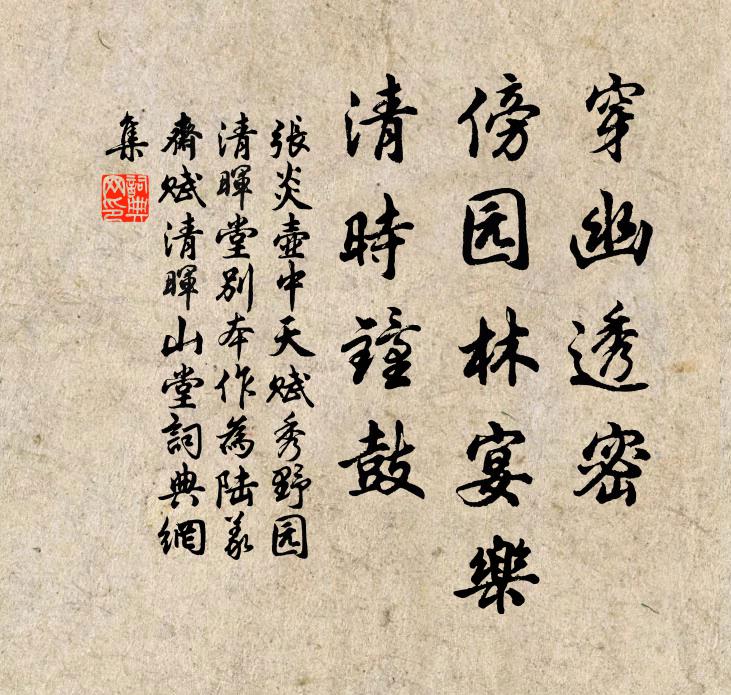 穿幽透密
傍园林宴樂
清時鐘鼓
張炎壺中天賦秀野园
清暉堂别本作為陆義
齋赋清暉山堂詞典網
集
詞典
网印